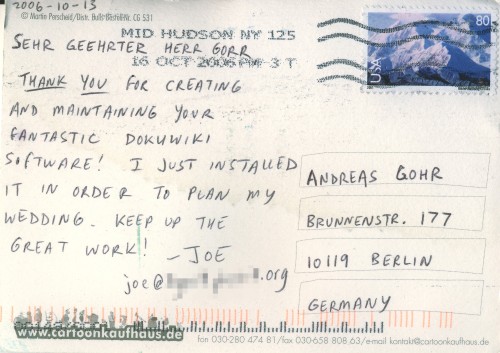 2006-10-13
© Martin Perscheid/Distr. Bulls Bestell-Nr. CG 531
MID HUDSON NY 125
16 OCT 2006 PM 3 T
80
USA
SEHR GEEHRTER HERR GORR
THANK YOU FOR CREATING
AND MAINTAINING YOUR
FANTASTIC DOKUWIKI
SOFTWARE! I JUST INSTALLED
IT IN ORDER TO PLAN MY
WEDDING. KEEP UP THE
GREAT WORK! - JOE
joe@ .org
ANDREAS GOHR
BRUNNENSTR. 177
10119 BERLIN
GERMANY
www.cartoonkaufhaus.de
fon 030-280 474 81/fax 030-658 808 63/e-mail kontakt@cartoonkaufhaus.de